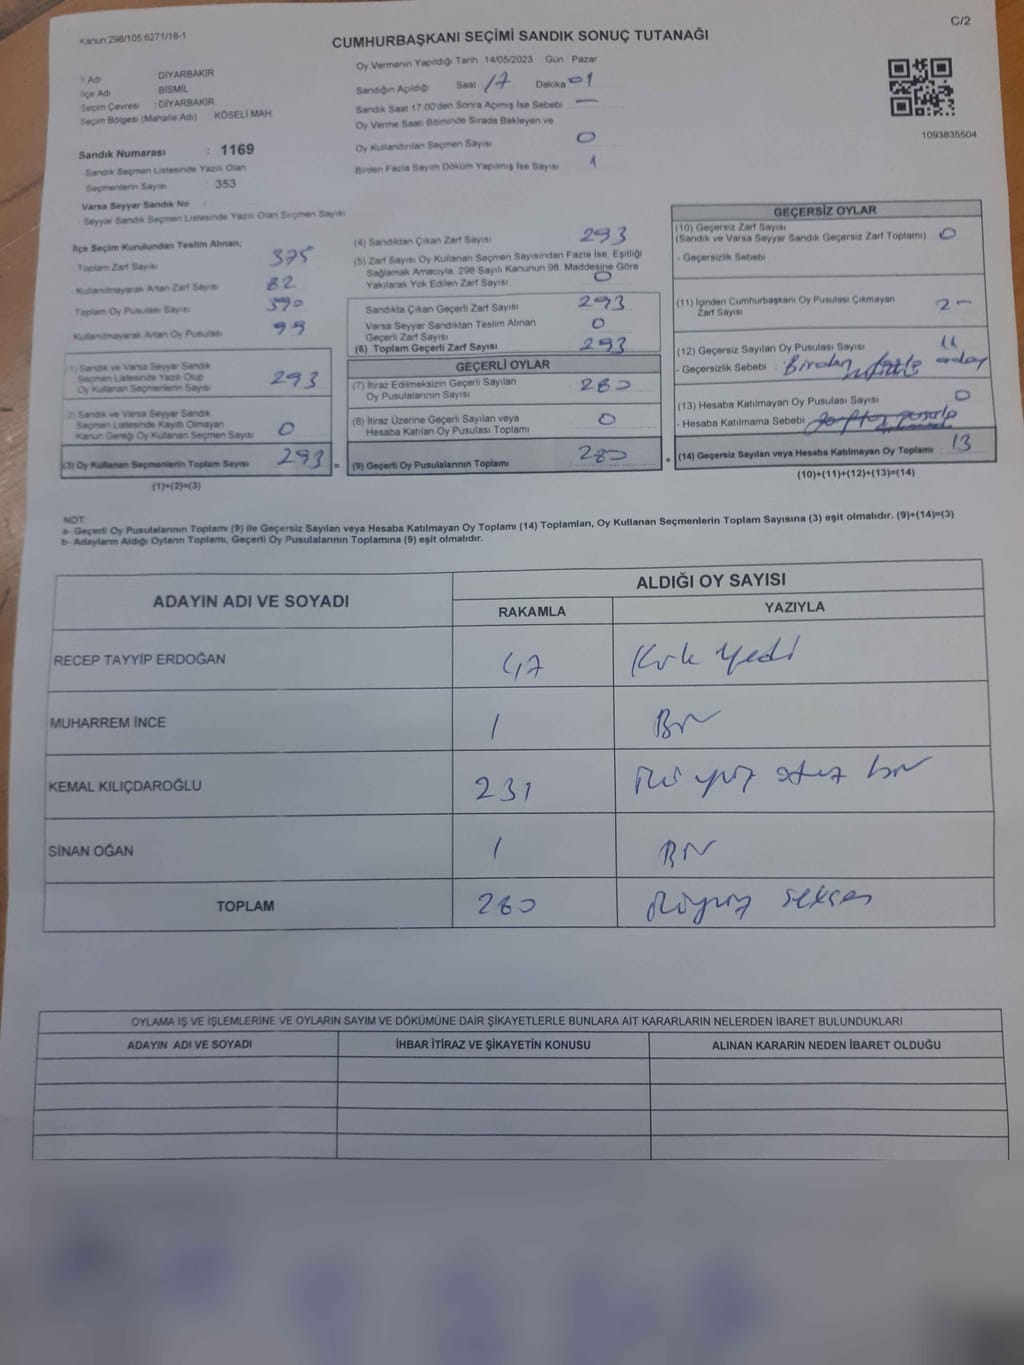 Kanun 298/105;6271/18-1
C/2
CUMHURBAŞKANI SEÇİMİ SANDIK SONUÇ TUTANAĞI
İl Adı DİYARBAKIR
İlçe Adı BİSMİL
Seçim Çevresi : DİYARBAKIR
Seçim Bölgesi (Mahalle Adı) KÖSELİ MAH.
Sandık Numarası : 1169
Sandık Seçmen Listesinde Yazılı Olan
Seçmenlerin Sayısı : 353
Varsa Seyyar Sandık No :
Seyyar Sandık Seçmen Listesinde Yazılı Olan Seçmen Sayısı
Oy Vermenin Yapıldığı Tarih 14/05/2023 Gün Pazar
Sandığın Açıldığı Saat 17 Dakika 01
Sandık Saat 17:00'den Sonra Açımış İse Sebebi —
Oy Verme Saati Bitiminde Sırada Bekleyen ve
Oy Kullandırılan Seçmen Sayısı 0
Birden Fazla Sayım Döküm Yapılmış İse Sayısı 1
1093835504
İlçe Seçim Kurulundan Teslim Alınan;
Toplam Zarf Sayısı 375
Kullanılmayarak Artan Zarf Sayısı 82
Toplam Oy Pusulası Sayısı 390
Kullanılmayarak Artan Oy Pusulası 99
(1) Sandık ve Varsa Seyyar Sandık
Seçmen Listesinde Yazılı Olup
Oy Kullanan Seçmenlerin Sayısı 293
(2) Sandık ve Varsa Seyyar Sandık
Seçmen Listesinde Kayıtlı Olmayan
Kanun Gereği Oy Kullanan Seçmen Sayısı 0
(3) Oy Kullanan Seçmenlerin Toplam Sayısı 293
(1)+(2)=(3)
(4) Sandıktan Çıkan Zarf Sayısı 293
(5) Zarf Sayısı Oy Kullanan Seçmen Sayısından Fazla İse, Eşitliği
Sağlamak Amacıyla, 298 Sayılı Kanunun 98. Maddesine Göre
Yakılarak Yok Edilen Zarf Sayısı 0
Sandıkta Çıkan Geçerli Zarf Sayısı 293
Varsa Seyyar Sandıktan Teslim Alınan
Geçerli Zarf Sayısı 0
(6) Toplam Geçerli Zarf Sayısı 293
GEÇERLİ OYLAR
(7) İtiraz Edilmeksizin Geçerli Sayılan
Oy Pusulalarının Sayısı 280
(8) İtiraz Üzerine Geçerli Sayılan veya
Hesaba Katılan Oy Pusulası Toplamı 0
= (9) Geçerli Oy Pusulalarının Toplamı 280
GEÇERSİZ OYLAR
(10) Geçersiz Zarf Sayısı
(Sandık ve Varsa Seyyar Sandık Geçersiz Zarf Toplamı) 0
- Geçersizlik Sebebi
(11) İçinden Cumhurbaşkanı Oy Pusulası Çıkmayan
Zarf Sayısı 2 -
(12) Geçersiz Sayılan Oy Pusulası Sayısı 11
- Geçersizlik Sebebi : Birden fazla aday
(13) Hesaba Katılmayan Oy Pusulası Sayısı 0
- Hesaba Katılmama Sebebi
+ (14) Geçersiz Sayılan veya Hesaba Katılmayan Oy Toplamı : 13
(10)+(11)+(12)+(13)=(14)
NOT:
a- Geçerli Oy Pusulalarının Toplamı (9) ile Geçersiz Sayılan veya Hesaba Katılmayan Oy Toplamı (14) Toplamları, Oy Kullanan Seçmenlerin Toplam Sayısına (3) eşit olmalıdır. (9)+(14)=(3)
b- Adayların Aldığı Oyların Toplamı, Geçerli Oy Pusulalarının Toplamına (9) eşit olmalıdır.
ADAYIN ADI VE SOYADI
ALDIĞI OY SAYISI
RAKAMLA YAZIYLA
RECEP TAYYİP ERDOĞAN 47 Kırk yedi
MUHARREM İNCE 1 Bir
KEMAL KILIÇDAROĞLU 231 iki yüz otuz bir
SİNAN OĞAN 1 Bir
TOPLAM 280 ikiyüz seksen
OYLAMA İŞ VE İŞLEMLERİNE VE OYLARIN SAYIM VE DÖKÜMÜNE DAİR ŞİKAYETLERLE BUNLARA AİT KARARLARIN NELERDEN İBARET BULUNDUKLARI
ADAYIN ADI VE SOYADI İHBAR İTİRAZ VE ŞİKAYETİN KONUSU ALINAN KARARIN NEDEN İBARET OLDUĞU